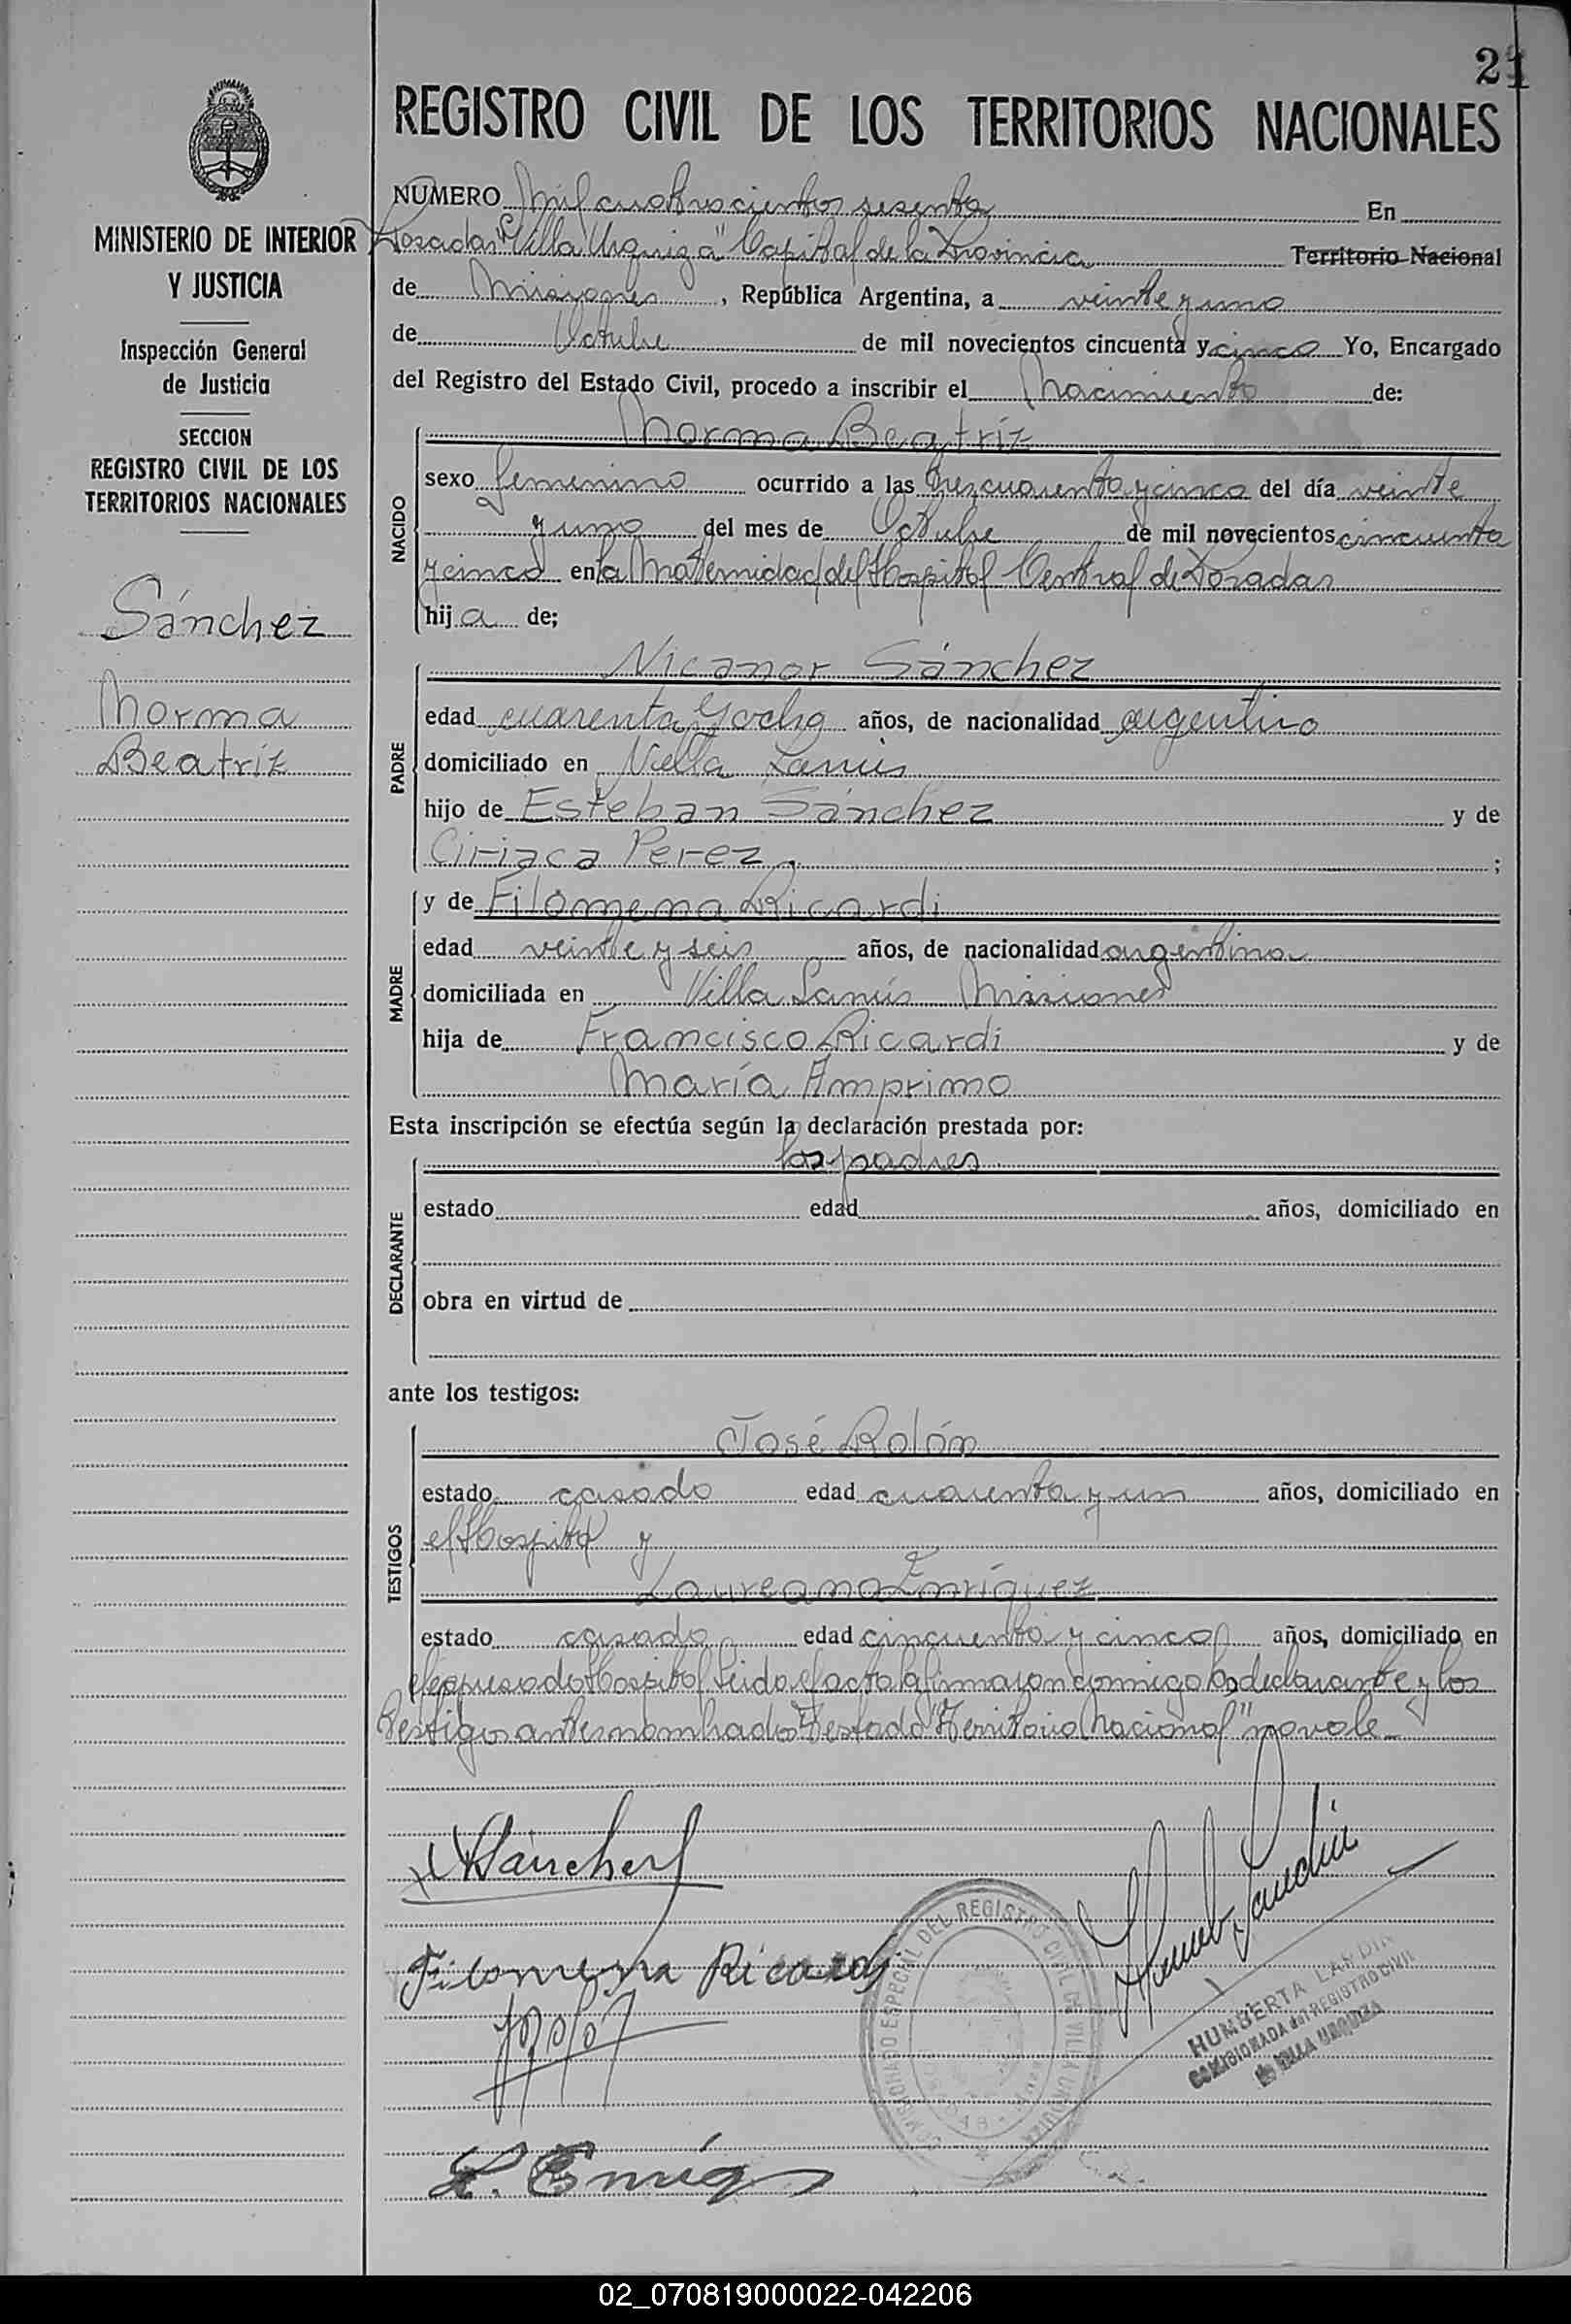 21
REGISTRO CIVIL DE LOS TERRITORIOS NACIONALES
MINISTERIO DE INTERIOR
Y JUSTICIA
Inspección General
de Justicia
SECCION
REGISTRO CIVIL DE LOS
TERRITORIOS NACIONALES
Sánchez
Norma
Beatríz
NUMERO Mil cuatrocientos sesenta En
Posadas "Villa Urquiza" Capital de la Provincia Territorio Nacional
de Misiones, República Argentina, a veinte y uno
de Octubre de mil novecientos cincuenta y cinco Yo, Encargado
del Registro del Estado Civil, procedo a inscribir el Nacimiento de:
NACIDO
Norma Beatríz
sexo femenino ocurrido a las trez cuarenta y cinco del día veinte
y uno del mes de Octubre de mil novecientos cincuenta
y cinco en la Maternidad del Hospital Central de Posadas
hija de;
PADRE
Nicanor Sánchez
edad cuarenta y ocho años, de nacionalidad argentino
domiciliado en Villa Lanús
hijo de Esteban Sánchez y de
Ciriaca Perez. ;
MADRE
y de Filomena Ricardi
edad veinte y seis años, de nacionalidad argentina
domiciliada en Villa Lanús Misiones
hija de Francisco Ricardi y de
María Amprimo
Esta inscripción se efectúa según la declaración prestada por:
DECLARANTE
los padres
estado edad años, domiciliado en
obra en virtud de
ante los testigos:
TESTIGOS
José Rolón
estado casado edad cuarenta y un años, domiciliado en
el Hospital y
Laureano Enríquez
estado casado edad cincuenta y cinco años, domiciliado en
el expresado Hospital Leido el acta la firmaron conmigo los declarante y los
testigos antes nombrados Testado "Territorio Nacional" no vale
NSánchez
Filomena Ricardi
COMISIONADO ESPECIAL DEL REGISTRO CIVIL DE VILLA URQUIZA
HUMBERTA LANDIN
COMISIONADA del REGISTRO CIVIL
de VILLA URQUIZA
02_070819000022-042206